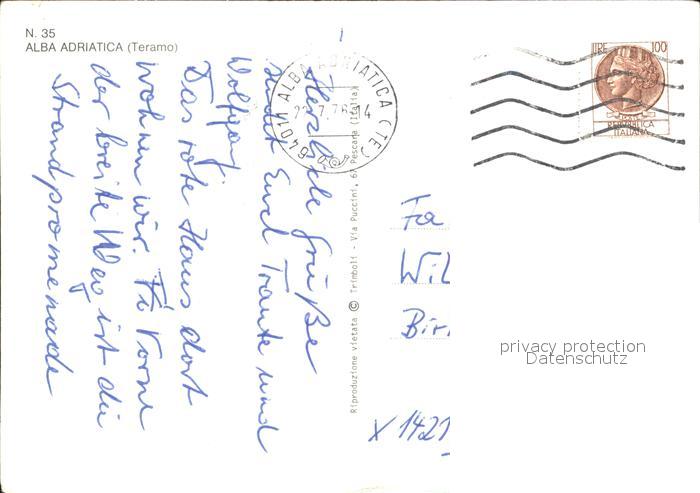 N. 35
ALBA ADRIATICA (Teramo)
Herzliche Grüße
sendet Euch Traute und
Wolfgang.
Das rote Haus dort
wohnen wir. Vorne
der breite Weg ist die
Strandpromenade
64011 ALBA ADRIATICA (TE)
Riproduzione vietata © Trimboli - Via Puccini, 67 Pescara (Italia)
LIRE 100
REPUBBLICA
ITALIANA
Fa
Wil
Bir
X 1421
privacy protection
Datenschutz